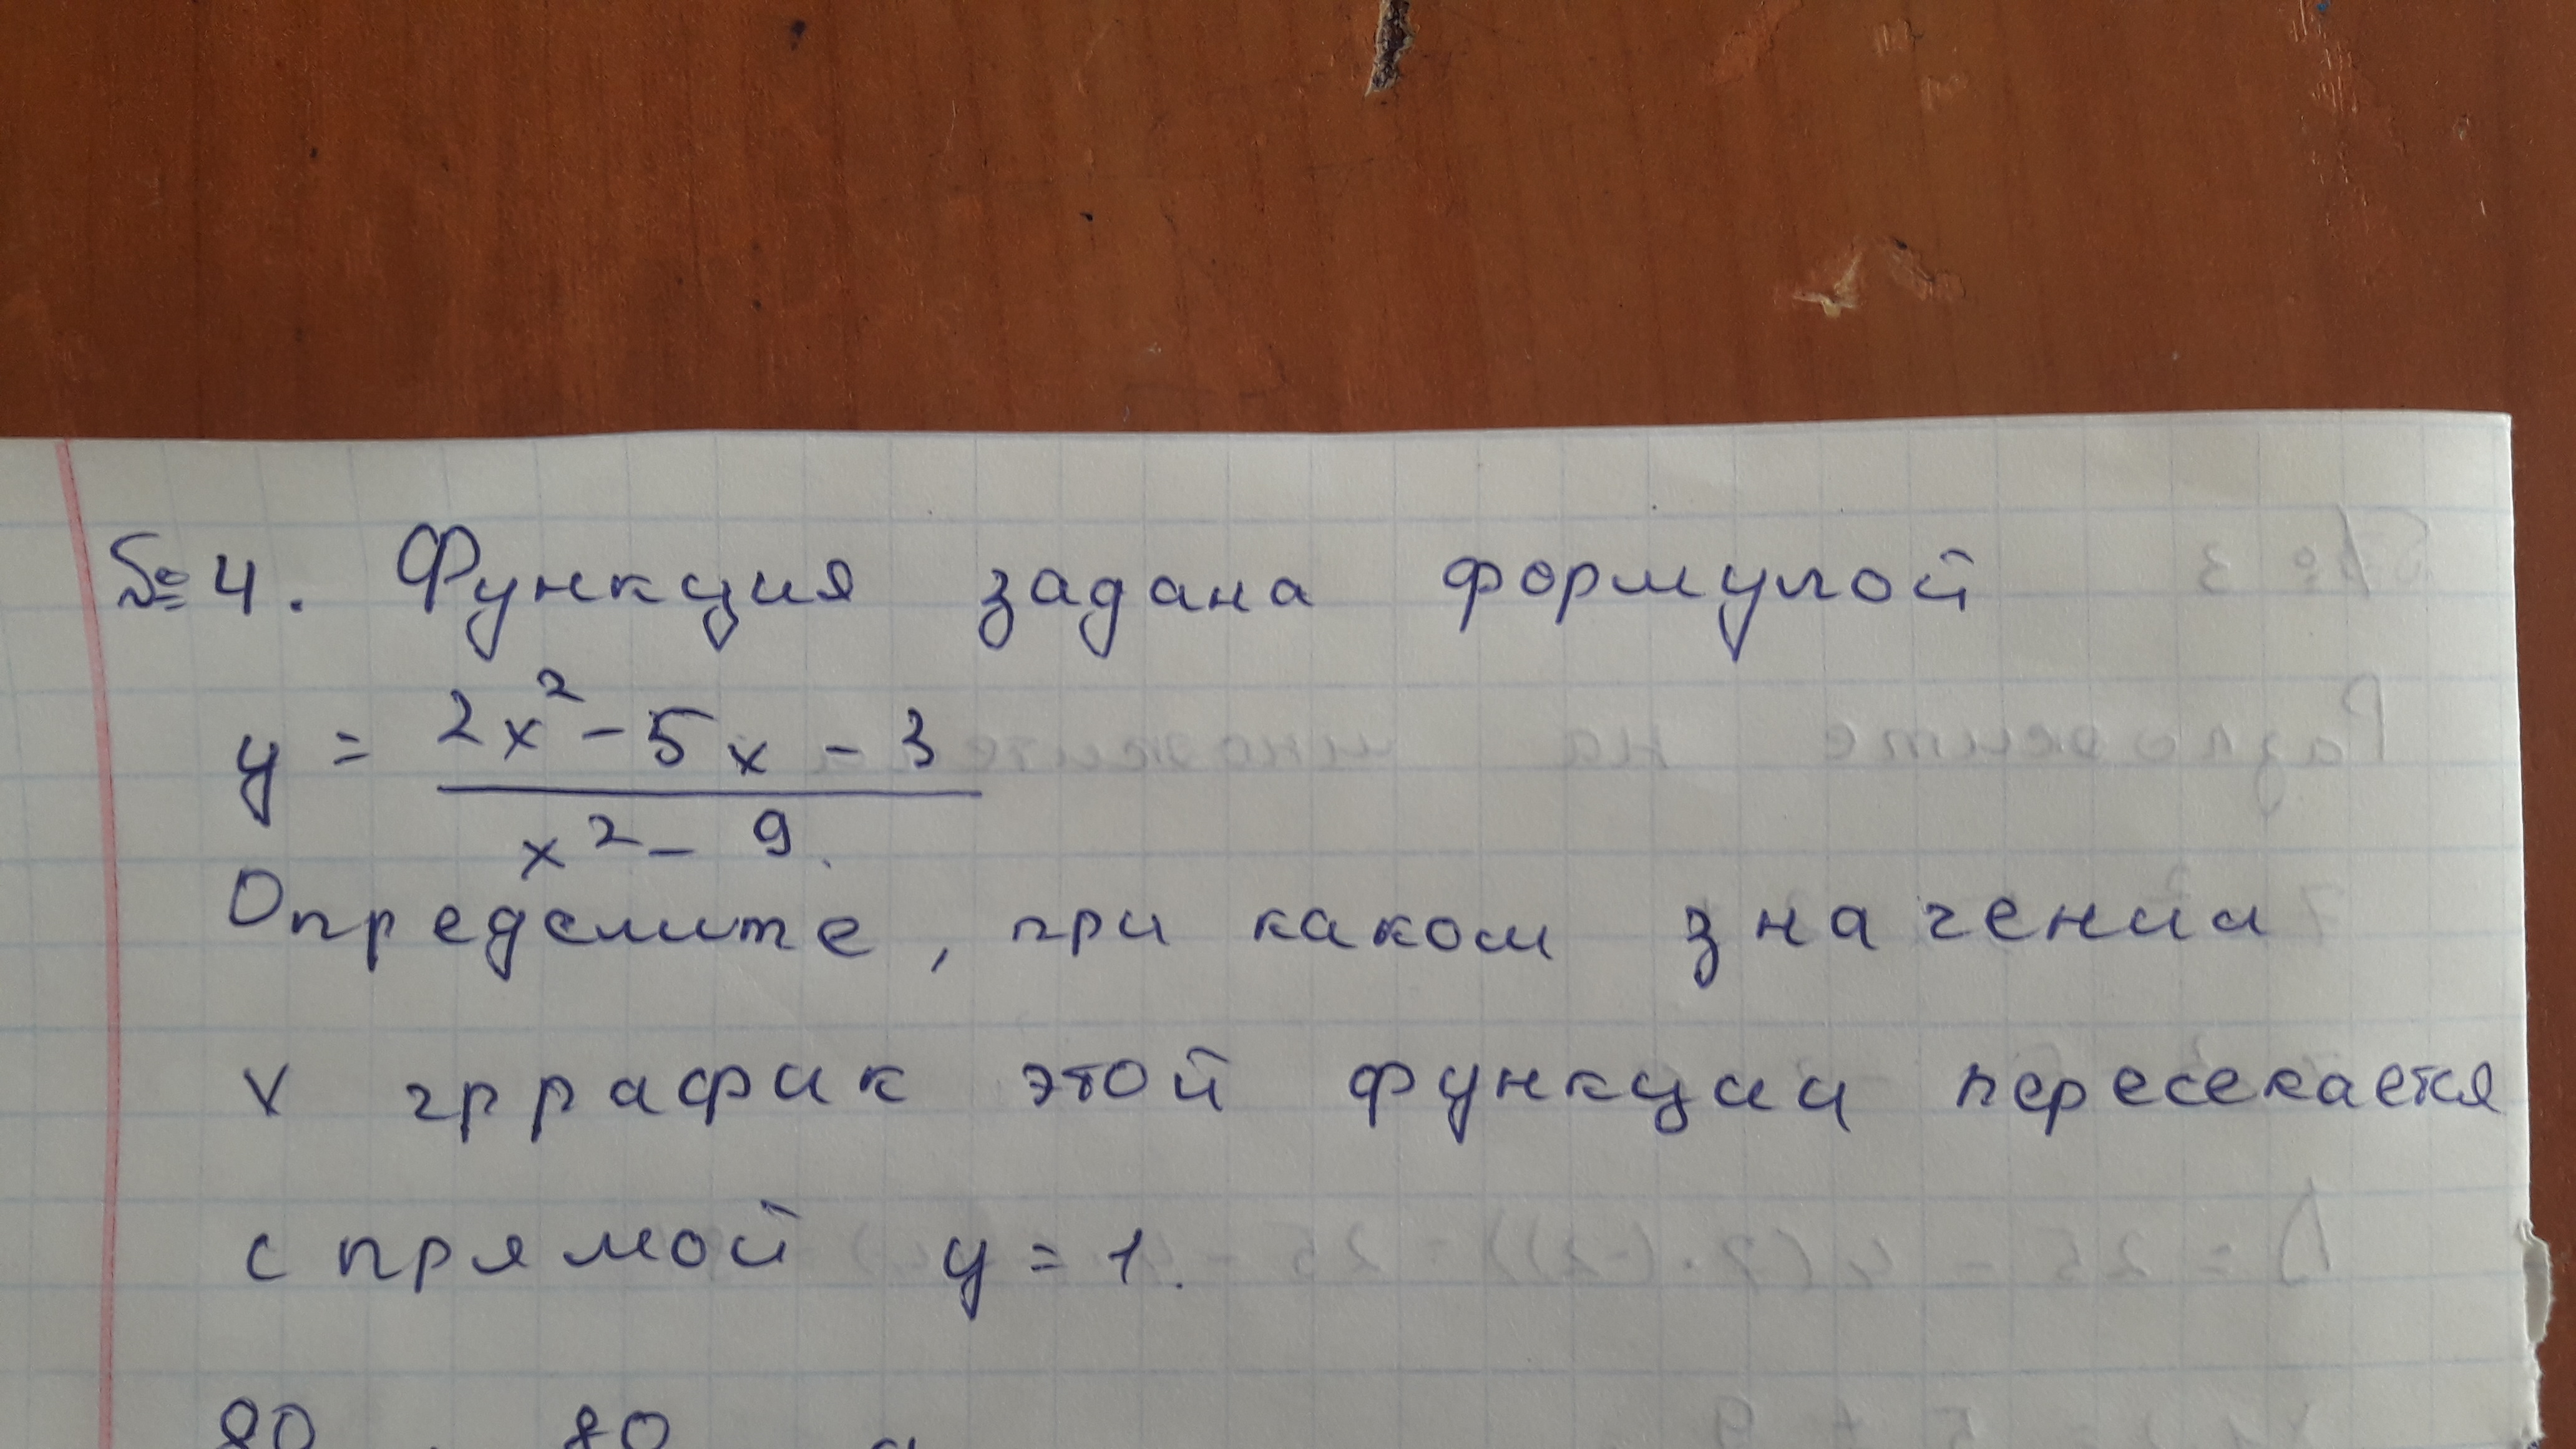 №4. Функция задана формулой
y = 2x² - 5x - 3
x² - 9.
Определите, при каком значении
х гррафик этой функции пересекается
с прямой y = 1.